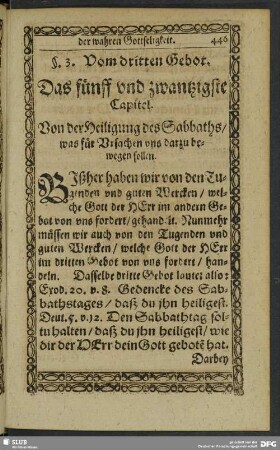 der wahren Gottseligkeit. 446
§. 3. Vom dritten Gebot.
Das fünff vnd zwantzigste
Capitel.
Von der Heiligung des Sabbaths/
was für Vrsachen vns darzu be-
wegen sollen.
BIßher haben wir von den Tu-
genden vnd guten Wercken/ wel-
che Gott der HErr im andern Ge-
bot von vns fordert/ gehandelt. Nunmehr
müssen wir auch von den Tugenden vnd
guten Wercken/ welche Gott der HErr
im dritten Gebot von vns fordert/ han-
deln. Dasselbe dritte Gebot lautet also:
Exod. 20. v. 8. Gedencke des Sab-
bathstages/ daß du jhn heiligest.
Deut. 5. v. 12. Den Sabbathtag sol-
tu halten/ daß du jhn heiligest/ wie
dir der HErr dein Gott gebotē hat.
Darbey
SLUB
DFG